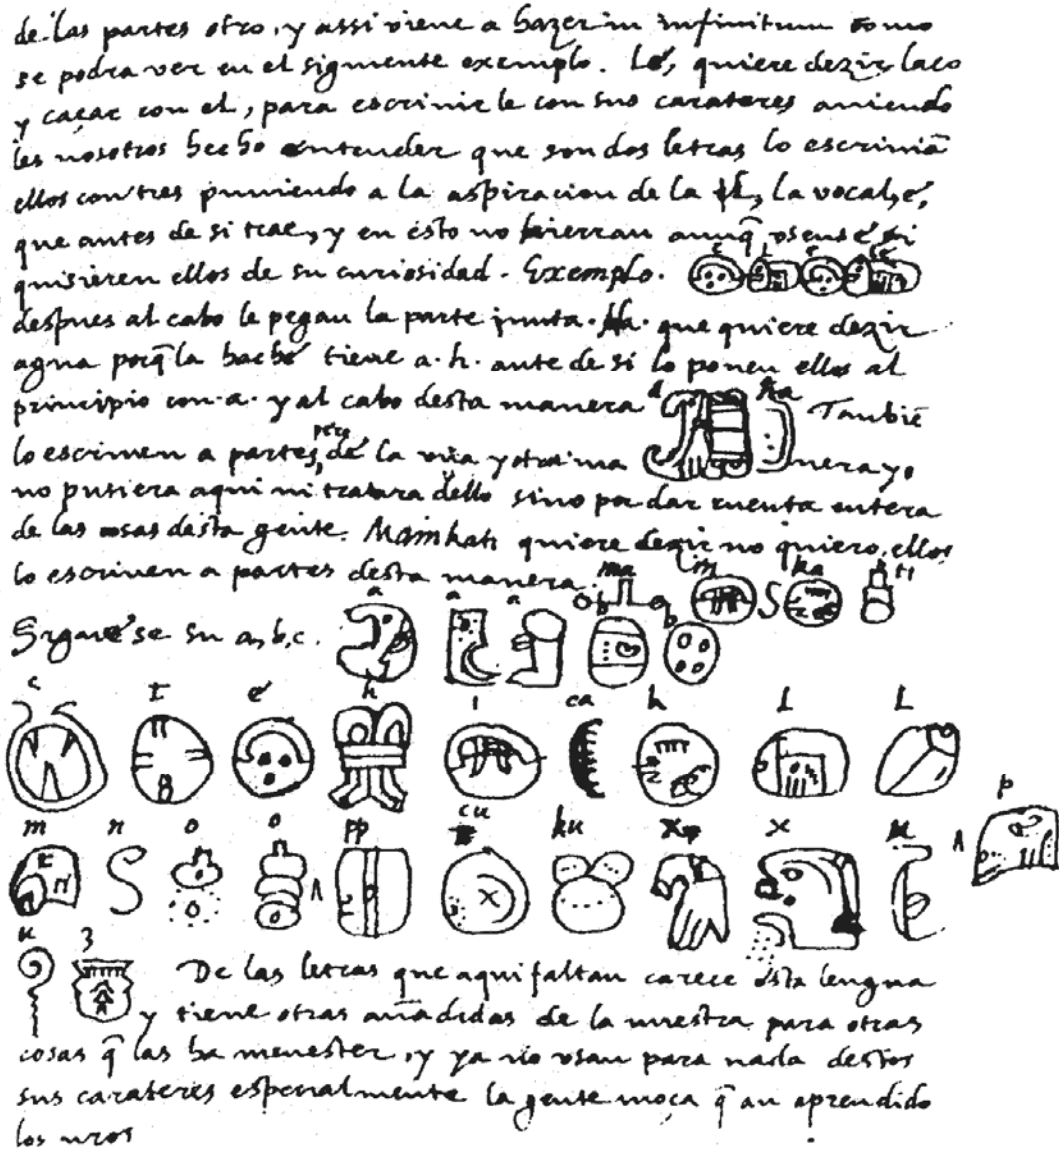 de las partes otro, y assi viene a hazer in infinitum como
se podra ver en el siguiente exemplo. Lé, quiere dezir laço
y caçar con el, para escrivirle con sus carateres aviendo
les nosotros hecho entender que son dos letras lo escrivian
ellos con tres puniendo a la aspiracion de la l, la vocal, é,
que antes de si trae, y en ésto no hierran aunq̃ osense si
quisieren ellos de su curiosidad. Exemplo. e L e Lé
despues al cabo le pegan la parte junta. Ha. que quiere dezir
agua porq̃ la haché tiene a. h. ante de si lo ponen ellos al
principio con .a. y al cabo desta manera a ha Tambiē
lo escriven a partes, pero de la una y otra ma nera yo
no pusiera aqui ni tratara dello sino por dar cuenta entera
de las cosas desta gente. Mainkati quiere dezir no quiero, ellos
lo escriven a partes desta manera. ma i n ka ti
Siguese su a, b, c. a a a b b
c t é h i ca k l l
m n o o pp cu ku x x u p
u z De las letras que aqui faltan carece esta lengua
y tiene otras añadidas de la nuestra para otras
cosas q̃ las ha menester, y ya no usan para nada destos
sus carateres especialmente la gente moça q̃ an aprendido
los nr̃os